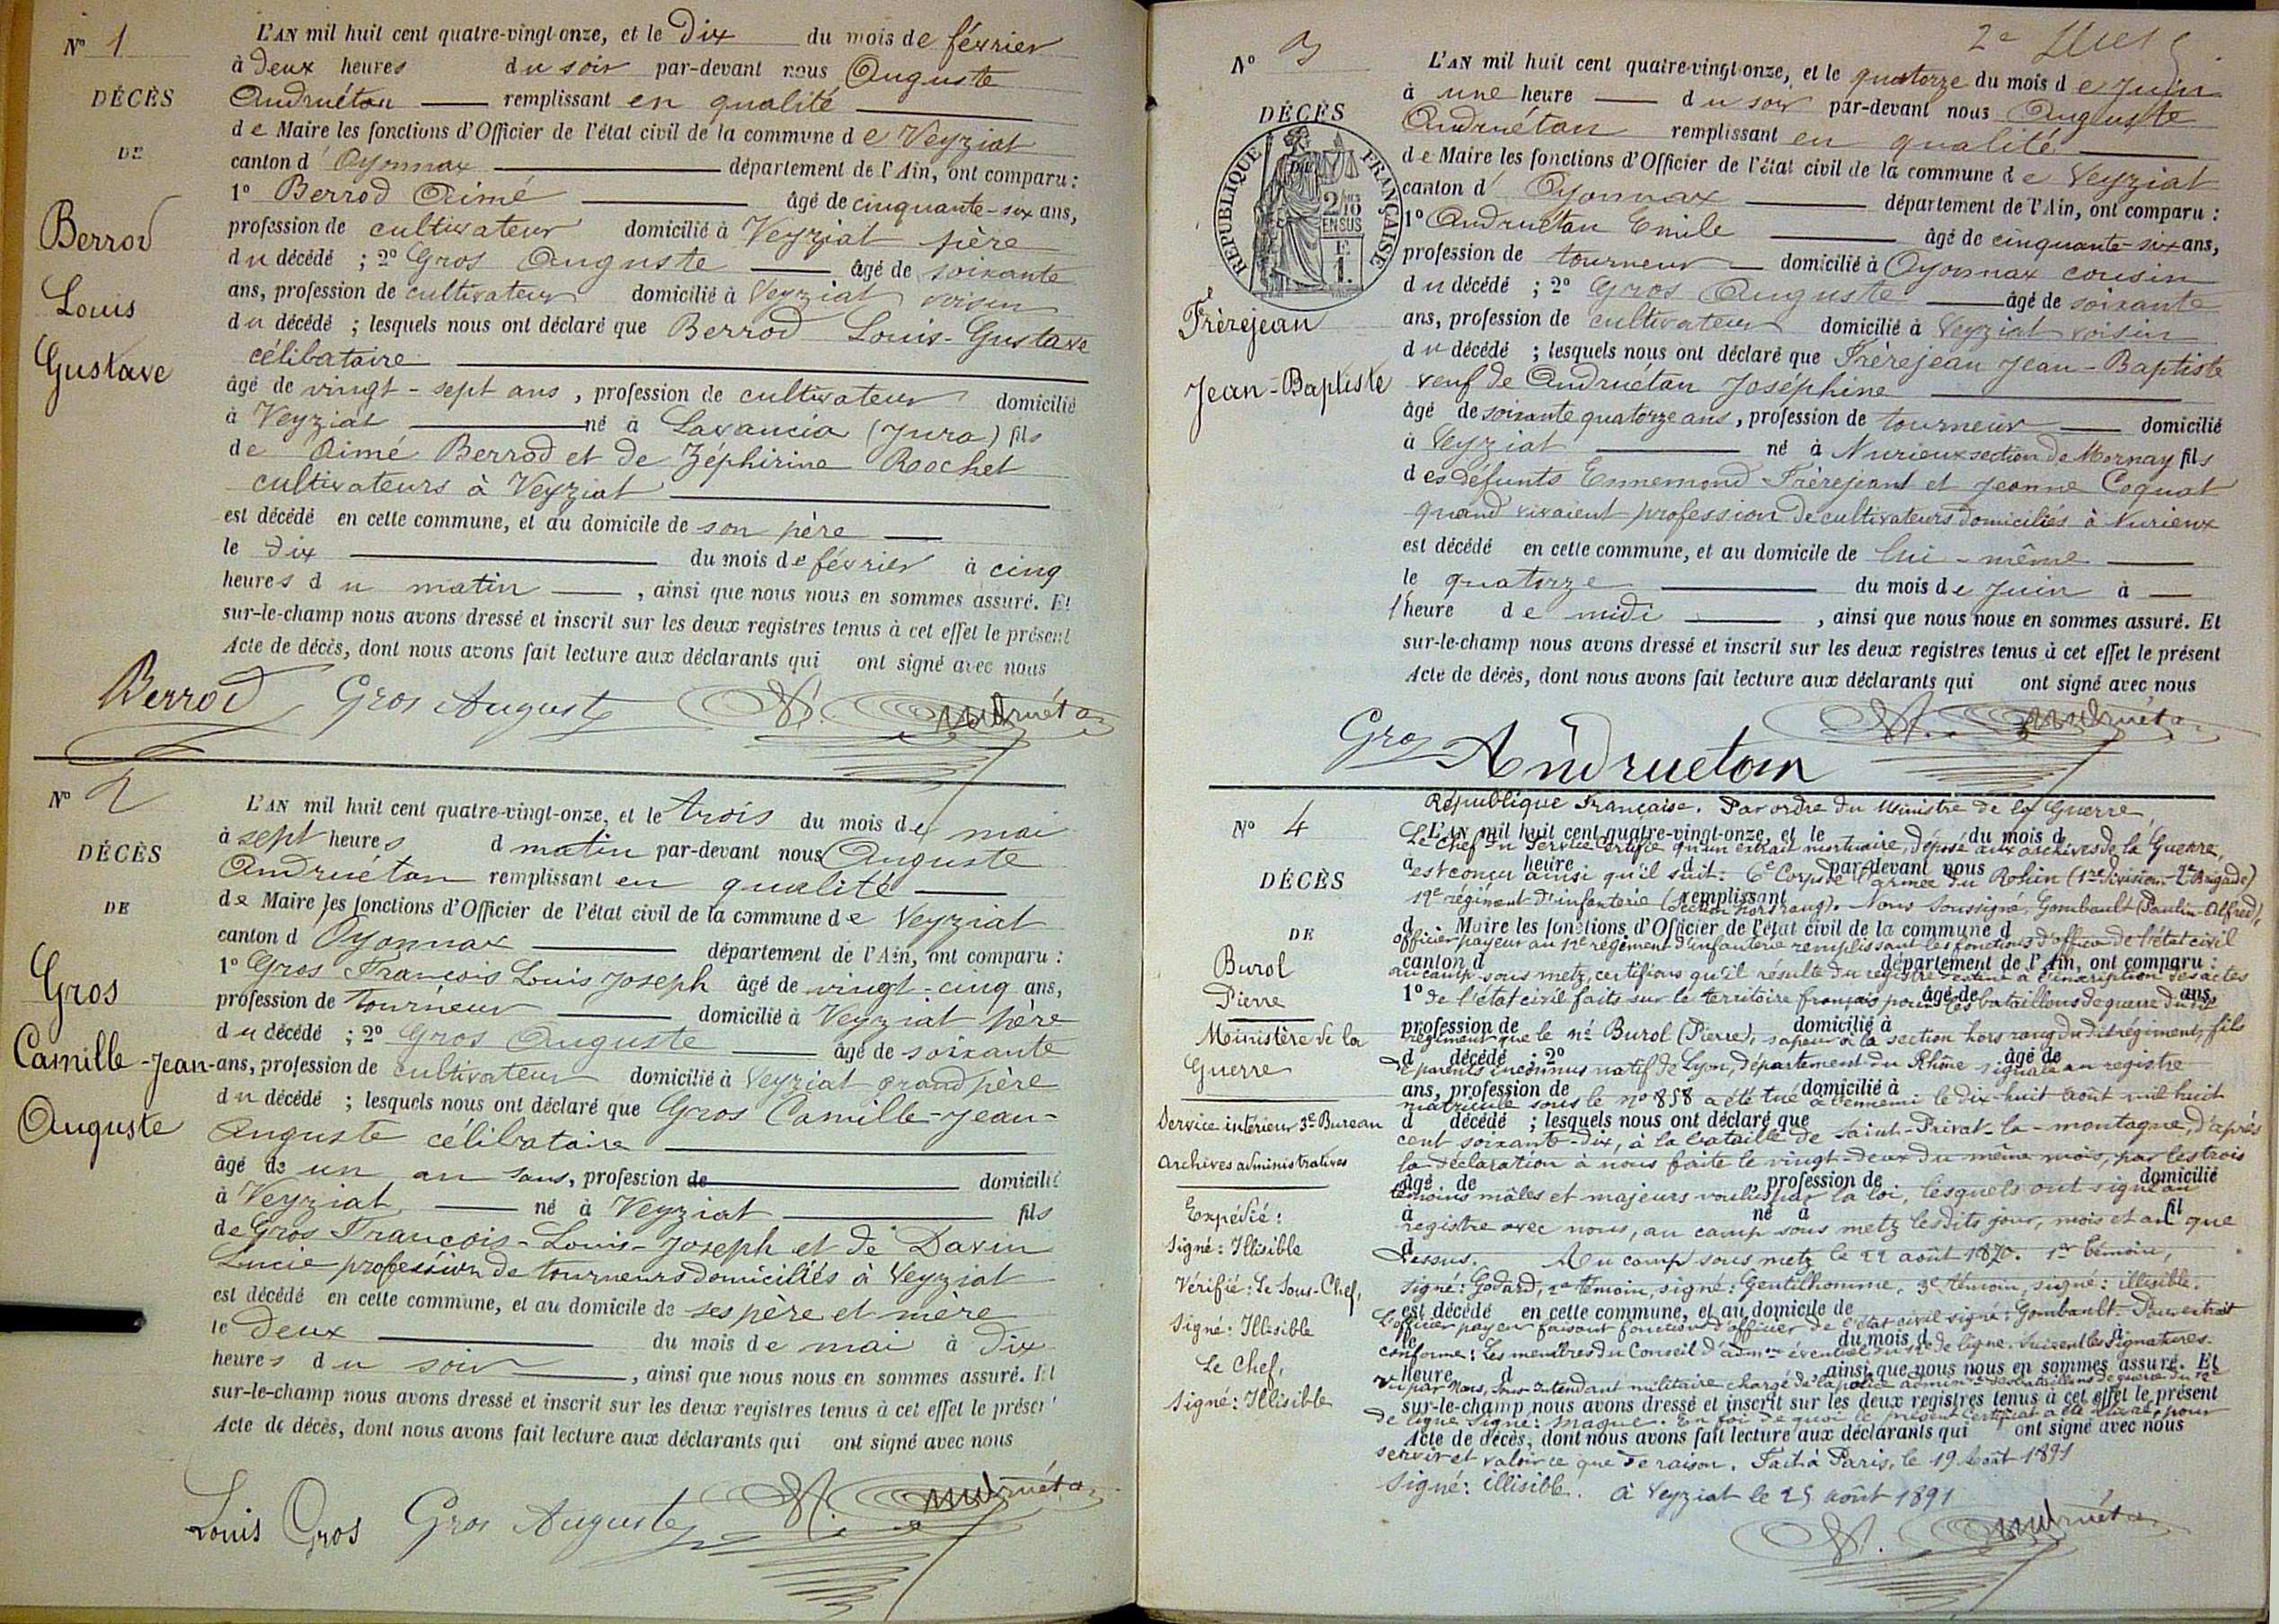 N° 1
DÉCÈS
DE
Berrod
Louis
Gustave
L'AN mil huit cent quatre-vingt-onze, et le dix du mois de février
à deux heures du soir par-devant nous Auguste
Andruétan remplissant en qualité
de Maire les fonctions d'Officier de l'état civil de la commune de Veyziat
canton d'Oyonnax département de l'Ain, ont comparu :
1° Berrod Aimé âgé de cinquante-six ans,
profession de cultivateur domicilié à Veyziat père
du décédé ; 2° Gros Auguste âgé de soixante
ans, profession de cultivateur domicilié à Veyziat voisin
du décédé ; lesquels nous ont déclaré que Berrod Louis-Gustave
célibataire
âgé de vingt-sept ans, profession de cultivateur domicilié
à Veyziat né à Lavancia (Jura) fils
de Aimé Berrod et de Zéphirine Rochet
cultivateurs à Veyziat
est décédé en cette commune, et au domicile de son père
le dix du mois de février à cinq
heures du matin, ainsi que nous nous en sommes assuré. Et
sur-le-champ nous avons dressé et inscrit sur les deux registres tenus à cet effet le présent
Acte de décès, dont nous avons fait lecture aux déclarants qui ont signé avec nous
Berrod Gros Auguste A. Andruétan
N° 2
DÉCÈS
DE
Gros
Camille-Jean-
Auguste
L'AN mil huit cent quatre-vingt-onze, et le trois du mois de mai
à sept heures d matin par-devant nous Auguste
Andruétan remplissant en qualité
de Maire les fonctions d'Officier de l'état civil de la commune de Veyziat
canton d Oyonnax département de l'Ain, ont comparu :
1° Gros François Louis Joseph âgé de vingt-cinq ans,
profession de tourneur domicilié à Veyziat père
du décédé ; 2° Gros Auguste âgé de soixante
ans, profession de cultivateur domicilié à Veyziat grand père
du décédé ; lesquels nous ont déclaré que Gros Camille-Jean-
Auguste célibataire
âgé de un an sans, profession de domicilié
à Veyziat né à Veyziat fils
de Gros François-Louis-Joseph et de Davin
Lucie profession de tourneurs domiciliés à Veyziat
est décédé en cette commune, et au domicile de ses père et mère
le deux du mois de mai à dix
heures du soir, ainsi que nous nous en sommes assuré. Et
sur-le-champ nous avons dressé et inscrit sur les deux registres tenus à cet effet le présent
Acte de décès, dont nous avons fait lecture aux déclarants qui ont signé avec nous
Louis Gros Gros Auguste A. Andruétan
2e
N° 3
DÉCÈS
DE
RÉPUBLIQUE FRANÇAISE
2/10 EN SUS
F 1.
Frèrejean
Jean-Baptiste
L'AN mil huit cent quatre-vingt-onze, et le quatorze du mois de Juin
à une heure du soir par-devant nous Auguste
Andruétan remplissant en qualité
de Maire les fonctions d'Officier de l'état civil de la commune de Veyziat
canton d'Oyonnax département de l'Ain, ont comparu :
1° Andruétan Emile âgé de cinquante-six ans,
profession de tourneur domicilié à Oyonnax cousin
du décédé ; 2° Gros Auguste âgé de soixante
ans, profession de cultivateur domicilié à Veyziat voisin
du décédé ; lesquels nous ont déclaré que Frèrejean Jean-Baptiste
veuf de Andruétan Joséphine
âgé de soixante quatorze ans, profession de tourneur domicilié
à Veyziat né à Nurieux section de Mornay fils
des défunts Ennemond Frèrejean et Jeanne Coquat
quand vivaient profession de cultivateurs domiciliés à Nurieux
est décédé en cette commune, et au domicile de lui-même
le quatorze du mois de Juin à
1 heure de midi, ainsi que nous nous en sommes assuré. Et
sur-le-champ nous avons dressé et inscrit sur les deux registres tenus à cet effet le présent
Acte de décès, dont nous avons fait lecture aux déclarants qui ont signé avec nous
Gros Andruetan A. Andruétan
N° 4
DÉCÈS
DE
Burol
Pierre
Ministère de la
Guerre
Service intérieur 3e Bureau
Archives administratives
Expédié :
Signé : Illisible
Vérifié : Le Sous-Chef,
Signé : Illisible
Le Chef,
Signé : Illisible
République Française. Par ordre du Ministre de la Guerre,
L'AN mil huit cent quatre-vingt-onze, et le du mois d
Le Chef du Service certifie qu'un extrait mortuaire, déposé aux archives de la Guerre,
à heure d par-devant nous
est conçu ainsi qu'il suit : 6e Corps de l'armée du Rhin (1re division - 2e Brigade)
remplissant
12e régiment d'infanterie (section hors rang). Nous soussigné, Gombault (Paulin-Alfred),
d Maire les fonctions d'Officier de l'état civil de la commune d
officier payeur au 12e régiment d'infanterie remplissant les fonctions d'officier de l'état civil
canton d département de l'Ain, ont comparu :
au camp sous metz, certifions qu'il résulte du registre destiné à l'inscription des actes
1° âgé de ans,
de l'état civil faits sur le territoire français pour les bataillons de guerre du 12e
profession de domicilié à
régiment que le né Burol (Pierre), sapeur à la section hors rang du dit régiment, fils
d décédé ; 2° âgé de
de parents inconnus natif de Lyon, département du Rhône signalé au registre
ans, profession de domicilié à
matricule sous le n° 858 a été tué à l'ennemi le dix-huit août mil huit
d décédé ; lesquels nous ont déclaré que
cent soixante-dix, à la bataille de Saint-Privat-la-montagne, d'après
la déclaration à nous faite le vingt-deux du même mois, par les trois
âgé de , profession de domicilié
témoins mâles et majeurs voulus par la loi, lesquels ont signé au
à né à fil
registre avec nous, au camp sous metz lesdits jour, mois et an que
d
dessus. Au camp sous metz le 22 août 1870. 1er témoin,
signé : Godard, 2e témoin, signé : Gentilhomme, 3e témoin, signé : illisible.
est décédé en cette commune, et au domicile de
L'officier payeur faisant fonctions d'officier de l'état civil signé : Gombault. Pour extrait
le du mois d à
conforme : Les membres du Conseil d'admon éventuel du 12e de ligne. Suivent les signatures.
heure d , ainsi que nous nous en sommes assuré. Et
Vu par Nous, Sous-Intendant militaire chargé de la police adminve des bataillons de guerre du 12e
sur-le-champ nous avons dressé et inscrit sur les deux registres tenus à cet effet le présent
de ligne signé : Magué. En foi de quoi le présent Certificat a été délivré, pour
Acte de décès, dont nous avons fait lecture aux déclarants qui ont signé avec nous
servir et valoir ce que de raison. Fait à Paris, le 19 Août 1891
Signé : illisible. à Veyziat le 25 août 1891
A. Andruétan